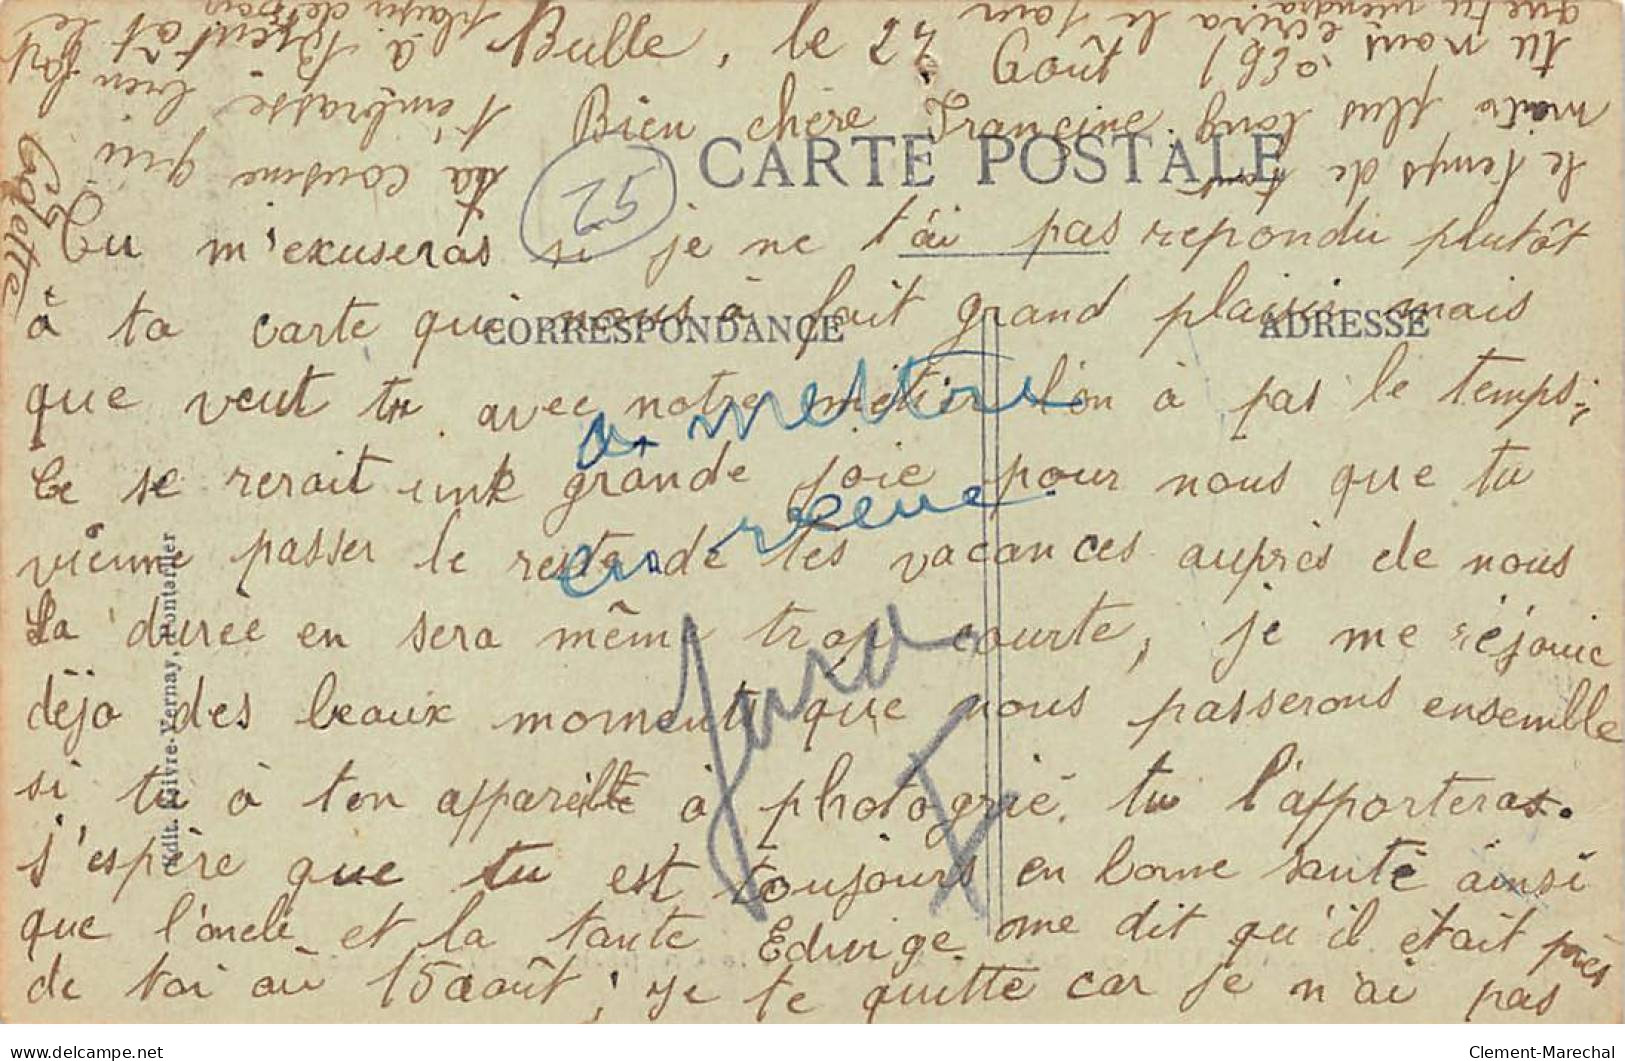 Bulle, le 27 Août 1930.
Bien chère Francine.
CARTE POSTALE
25
Tu m'exuseras si je ne t'ai pas repondu plutôt
à ta carte qui nous à fait grand plaisir mais
CORRESPONDANCE
ADRESSE
que veut tu avec notre métier l'on à pas le temps;
Ce se rerait une grande joie pour nous que tu
vienne passer le reste de tes vacances auprès de nous
La durée en sera même trop courte, je me réjouie
déja des beaux moments que nous passerons ensemble
si tu à ton appareille à photogrié. tu l'apporteras.
j'espère que tu est toujours en bonne santé ainsi
que l'oncle et la tante Edwige on me dit qu'il était près
de toi au 15 août; je te quitte car je n'ai pas
le temps de tent
maits plus long
tu nous écrira le jour
que tu viendra.
ta cousine qui
t'embrasse bien fort
à bientôt le
plaisir de
Colette
a mettre
en
Jura
Edit. Faivre-Vernay, Pontarlier
Clement-Marechal
delcampe.net